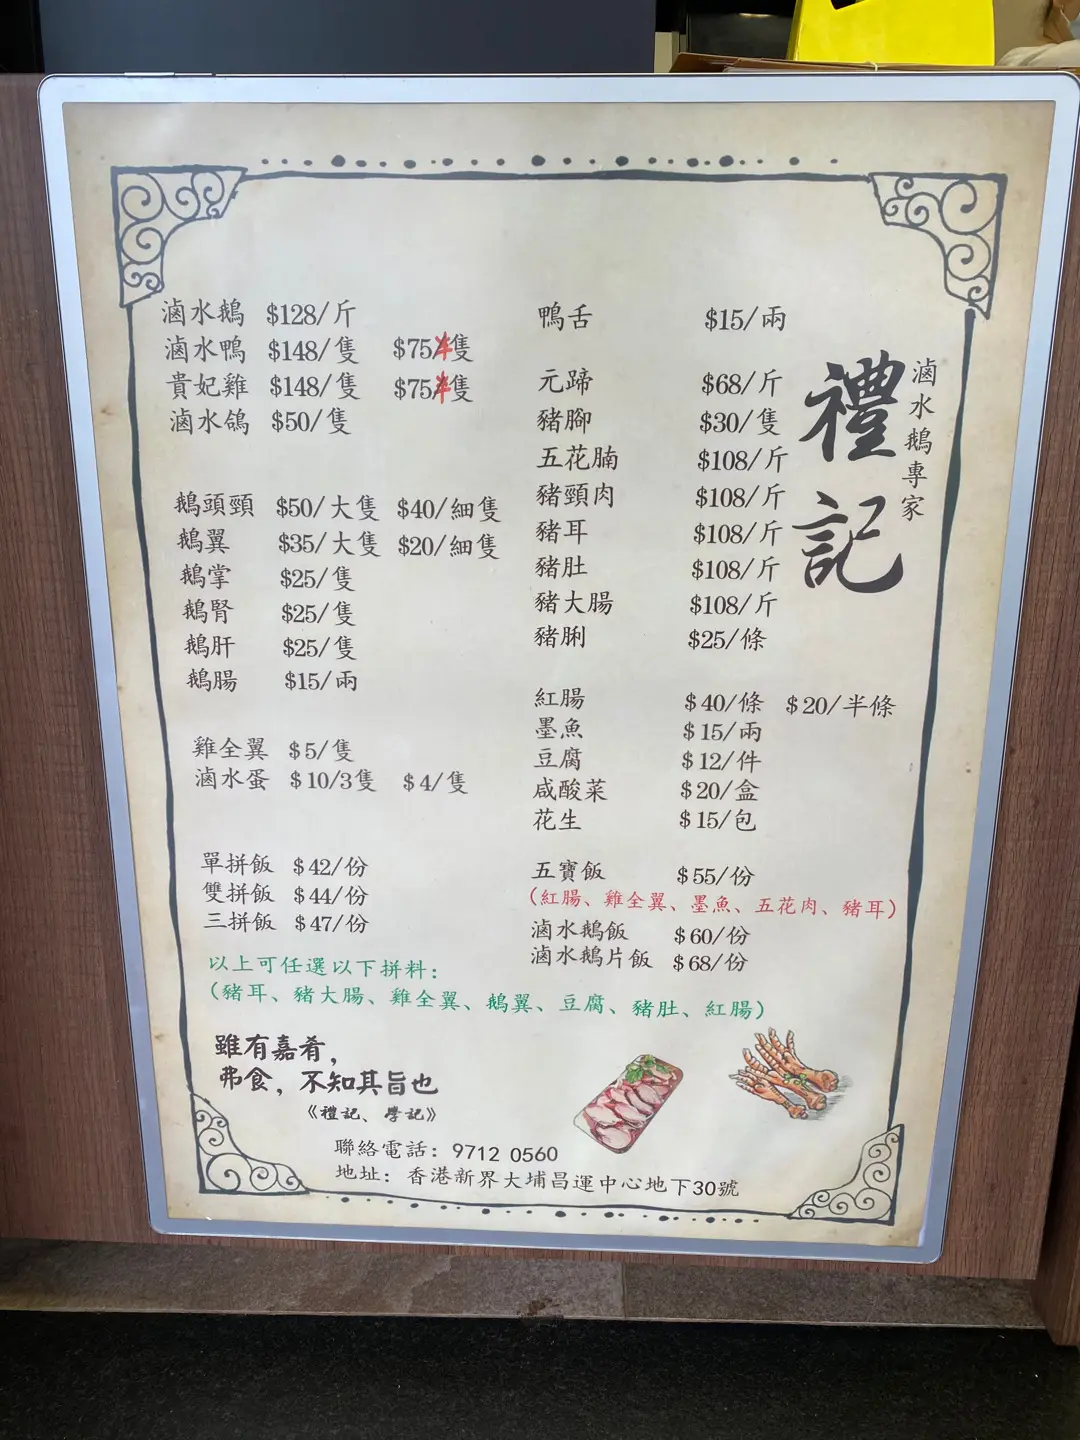 滷水鵝 $128/斤
滷水鴨 $148/隻 $75半隻
貴妃雞 $148/隻 $75半隻
滷水鴿 $50/隻
鵝頭頸 $50/大隻 $40/細隻
鵝翼 $35/大隻 $20/細隻
鵝掌 $25/隻
鵝腎 $25/隻
鵝肝 $25/隻
鵝腸 $15/兩
雞全翼 $5/隻
滷水蛋 $10/3隻 $4/隻
單拼飯 $42/份
雙拼飯 $44/份
三拼飯 $47/份
鴨舌 $15/兩
元蹄 $68/斤
豬腳 $30/隻
五花腩 $108/斤
豬頸肉 $108/斤
豬耳 $108/斤
豬肚 $108/斤
豬大腸 $108/斤
豬脷 $25/條
紅腸 $40/條 $20/半條
墨魚 $15/兩
豆腐 $12/件
咸酸菜 $20/盒
花生 $15/包
五寶飯 $55/份
(紅腸、雞全翼、墨魚、五花肉、豬耳)
滷水鵝飯 $60/份
滷水鵝片飯 $68/份
禮記
滷水鵝專家
以上可任選以下拼料:
(豬耳、豬大腸、雞全翼、鵝翼、豆腐、豬肚、紅腸)
雖有嘉肴,
弗食, 不知其旨也
《禮記、學記》
聯絡電話: 9712 0560
地址: 香港新界大埔昌運中心地下30號